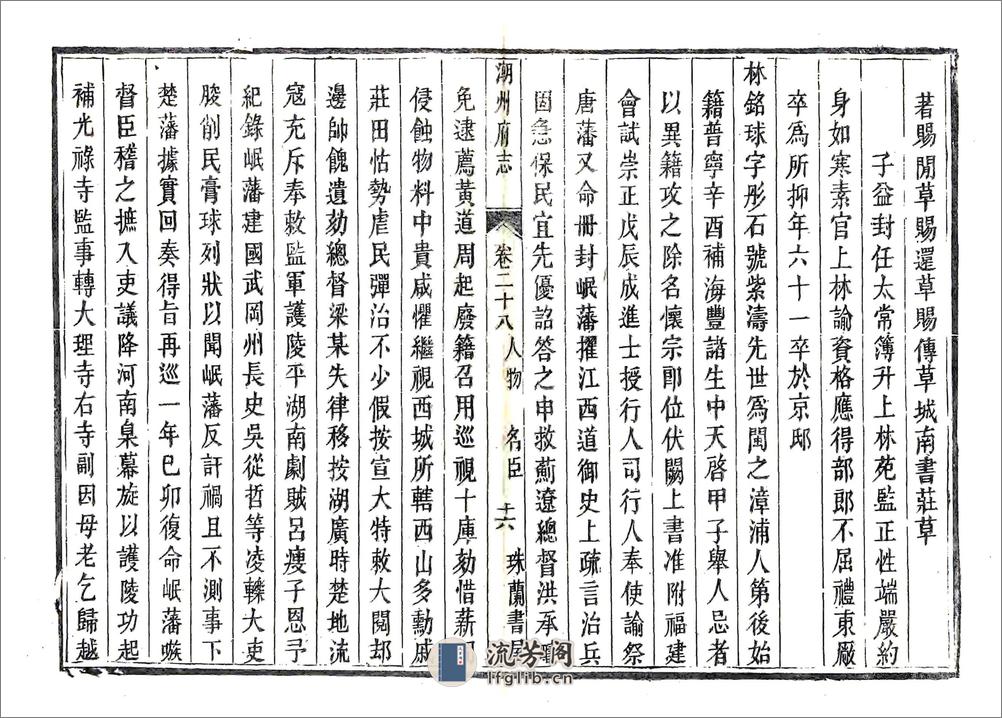 著賜閒草賜還草賜傳草城南書莊草
子益封任太常簿升上林苑監正性端嚴約
身如寒素官上林諭資格應得部郎不屈禮東厰
卒爲所抑年六十一卒於京邸
林銘球字彤石號紫濤先世爲閩之漳浦人第後始
籍普寧辛酉補海豐諸生中天啓甲子舉人忌者
以異籍攻之除名懷宗卽位伏闕上書准附福建
會試崇正戊辰成進士授行人司行人奉使諭祭
唐藩又命冊封岷藩擢江西道御史上疏言治兵
固急保民宜先優詔答之申救薊遼總督洪承
潮州府志 卷二十八 人物 名臣 十六 珠蘭書屋
免逮薦黃道周起廢籍召用巡視十庫劾惜薪
侵蝕物料中貴咸懼繼視西城所轄西山多勳戚
莊田怙勢虐民彈治不少假按宣大特敕大閱却
邊帥餽遺劾總督梁某失律移按湖廣時楚地流
寇充斥奉敕監軍護陵平湖南劇賊呂瘦子恩予
紀錄岷藩建國武岡州長史吳從哲等凌轢大吏
朘削民膏球列狀以聞岷藩反訐禍且不測事下
楚藩據實回奏得旨再巡一年巳卯復命岷藩嗾
督臣稽之摭入吏議降河南臬幕旋以護陵功起
補光祿寺監事轉大理寺右寺副因母老乞歸越
流芳阁
lfglib.cn